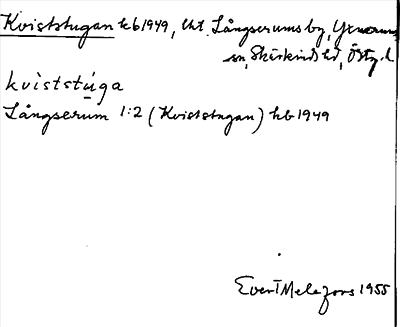 Kviststugan hb 1949, lht. Långserums by, Yxnerums
sn, Skärkinds hd, Östg. l.
kviststúga
Långserum 1:2 (Kviststugan) hb 1949
Evert Melefors 1955